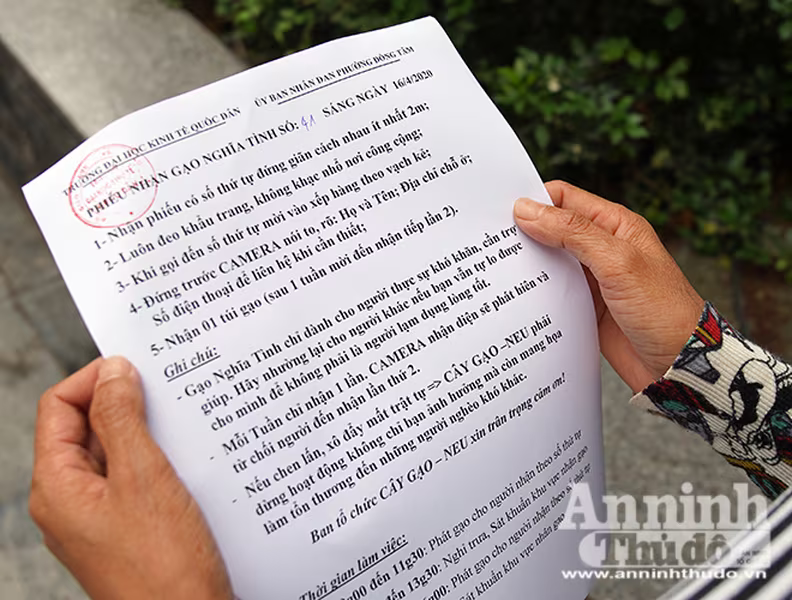 TRƯỜNG ĐẠI HỌC KINH TẾ QUỐC DÂN ỦY BAN NHÂN DAN PHƯỜNG ĐỒNG TÂM
PHIẾU NHẬN GẠO NGHĨA TÌNH SỐ: 41 SÁNG NGÀY 16/4/2020
1- Nhận phiếu có số thứ tự đứng giãn cách nhau ít nhất 2m;
2- Luôn đeo khẩu trang, không khạc nhổ nơi công cộng;
3- Khi gọi đến số thứ tự mời vào xếp hàng theo vạch kẻ;
4- Đứng trước CAMERA nói to, rõ: Họ và Tên; Địa chỉ chỗ ở;
Số điện thoại để liên hệ khi cần thiết;
5- Nhận 01 túi gạo (sau 1 tuần mới đến nhận tiếp lần 2).
Ghi chú:
- Gạo Nghĩa Tình chỉ dành cho người thực sự khó khăn, cần trợ
giúp. Hãy nhường lại cho người khác nếu bạn vẫn tự lo được
cho mình để không phải là người lạm dụng lòng tốt.
- Mỗi Tuần chỉ nhận 1 lần. CAMERA nhận diện sẽ phát hiện và
từ chối người đến nhận lần thứ 2.
- Nếu chen lấn, xô đẩy mất trật tự => CÂY GẠO –NEU phải
dừng hoạt động không chỉ bạn ảnh hưởng mà còn mang họa
làm tổn thương đến những người nghèo khó khác.
Ban tổ chức CÂY GẠO – NEU xin trân trọng cảm ơn!
Thời gian làm việc:
đến 11g30: Phát gạo cho người nhận theo số thứ tự
đến 13g30: Nghỉ trưa, Sát khuẩn khu vực nhận gạo
Phát gạo cho người nhận theo số thứ tự
Sát khuẩn khu vực nhận gạo
An ninh
Thủ đô
www.anninhthudo.vn